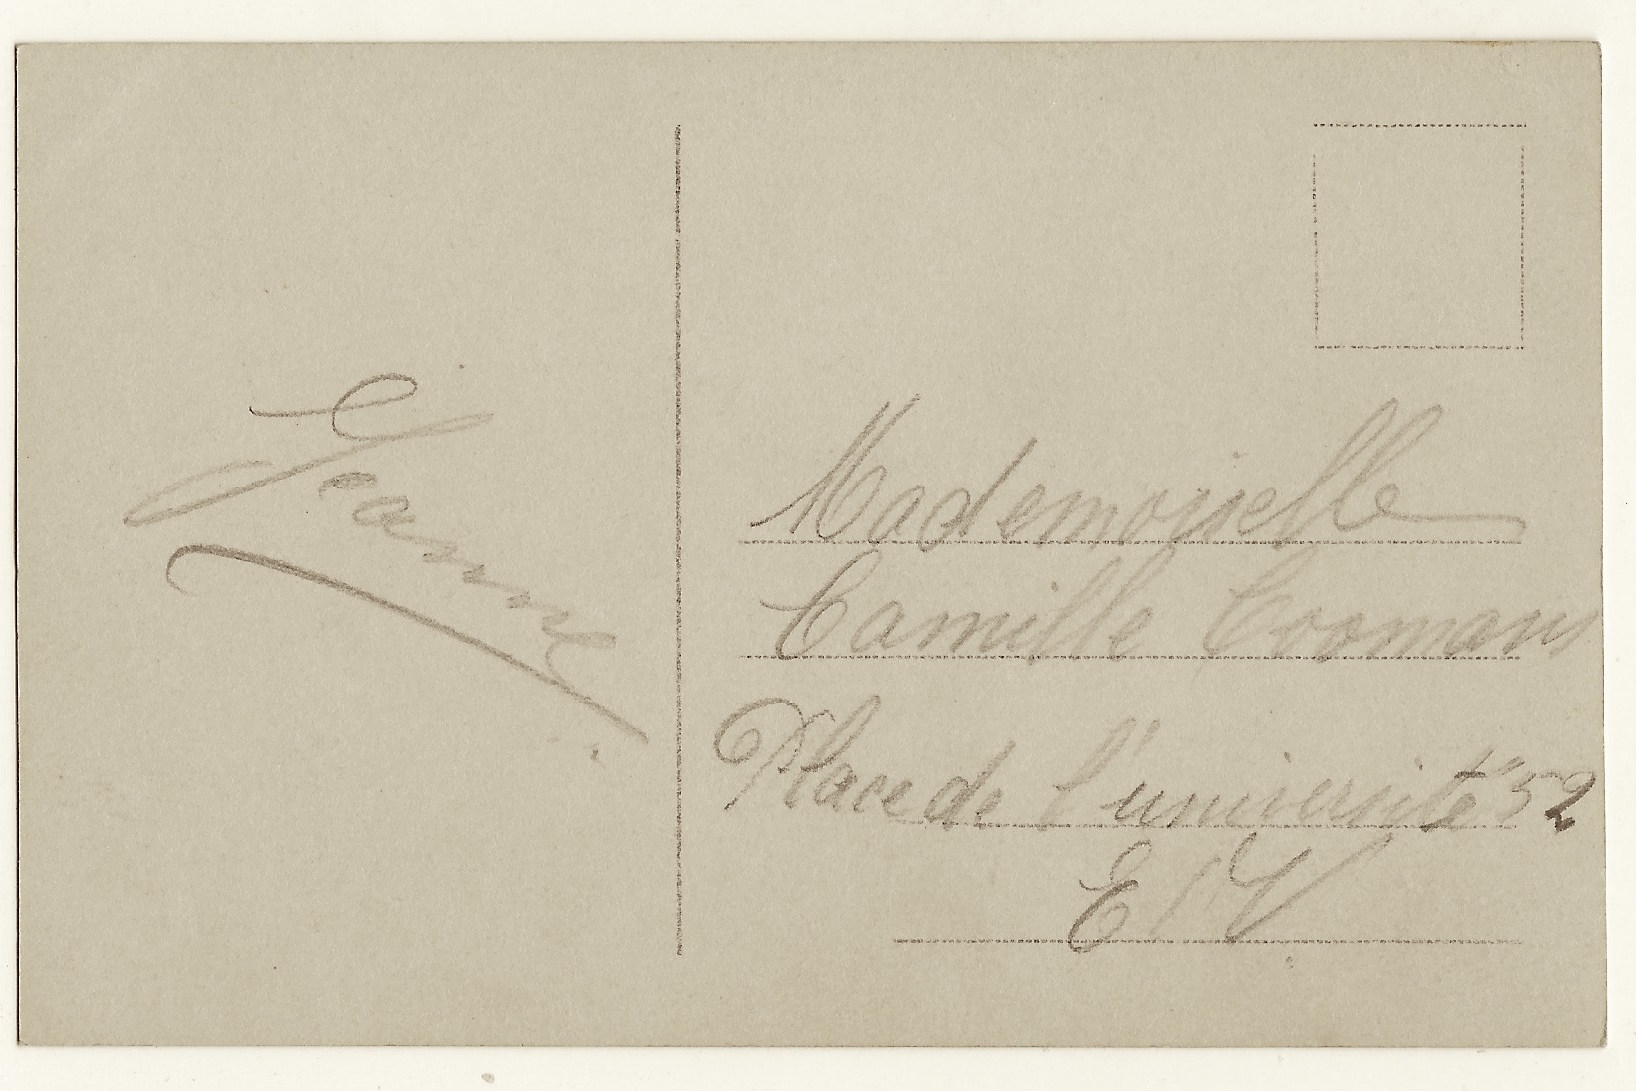 Jeanne
Mademoiselle
Camille Coomans
Place de l'université 52
E/V